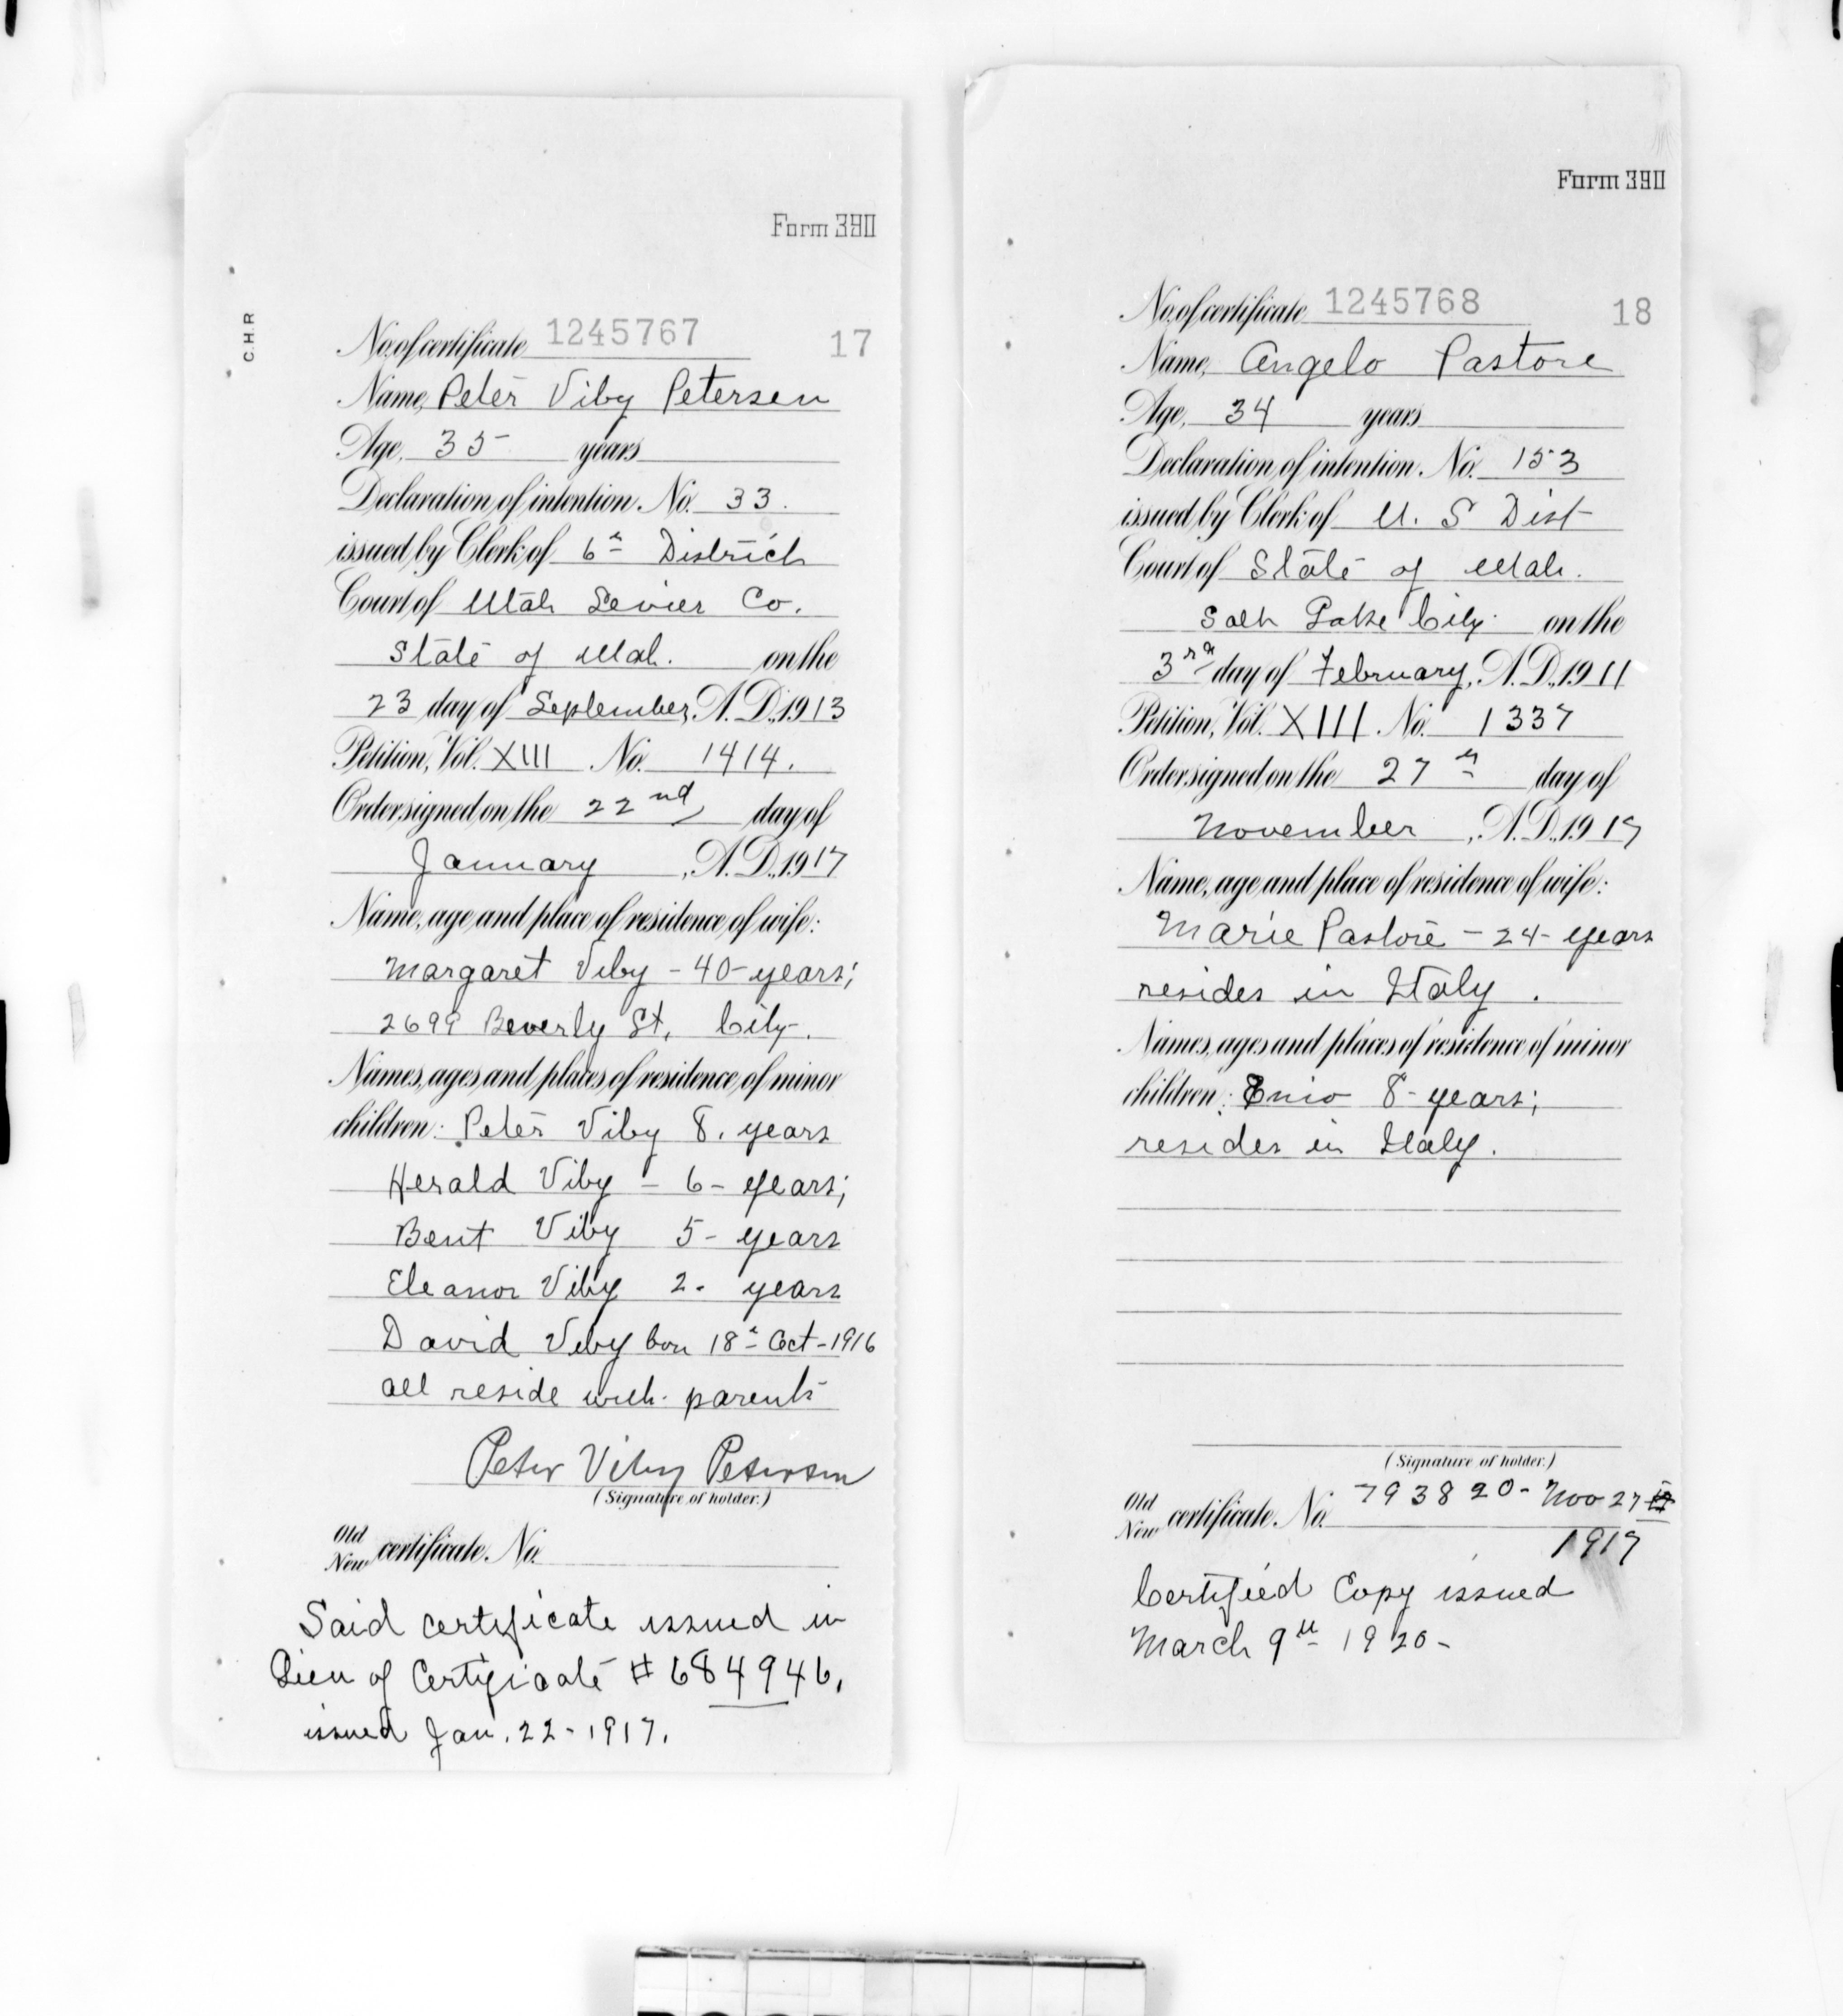 Form 390
C.H.R
No. of certificate 1245767 17
Name, Peter Viby Petersen
Age, 35 years
Declaration of intention, No. 33.
issued by Clerk of 6th District
Court of Utah Sevier Co.
State of Utah. on the
23 day of September, A.D., 1913
Petition, Vol. XIII No. 1414.
Order signed on the 22nd day of
January, A.D., 1917
Name, age and place of residence of wife:
Margaret Viby - 40 - years;
2699 Beverly St, City.
Names, ages and places of residence of minor
children: Peter Viby 8. years
Herald Viby - 6 - years;
Bent Viby 5 - years
Eleanor Viby 2. years
David Viby born 18th Oct - 1916
all reside with parents
Peter Viby Petersen
(Signature of holder.)
Old
New certificate, No.
Said certificate issued in
lieu of Certificate # 684946,
issued Jan. 22 - 1917.
Form 390
No. of certificate 1245768 18
Name, Angelo Pastore
Age, 34 years
Declaration of intention, No. 153
issued by Clerk of U. S Dist
Court of State of Utah.
Salt Lake City. on the
3rd day of February, A.D., 1911
Petition, Vol. XIII No. 1337
Order signed on the 27th day of
November, A.D., 1917
Name, age and place of residence of wife:
Marie Pastore - 24 - years
resides in Italy.
Names, ages and places of residence of minor
children: Enio 8 - years;
resides in Italy.
(Signature of holder.)
Old
New certificate, No. 793820 - Nov 27
1917
Certified Copy issued
March 9th 1920 -